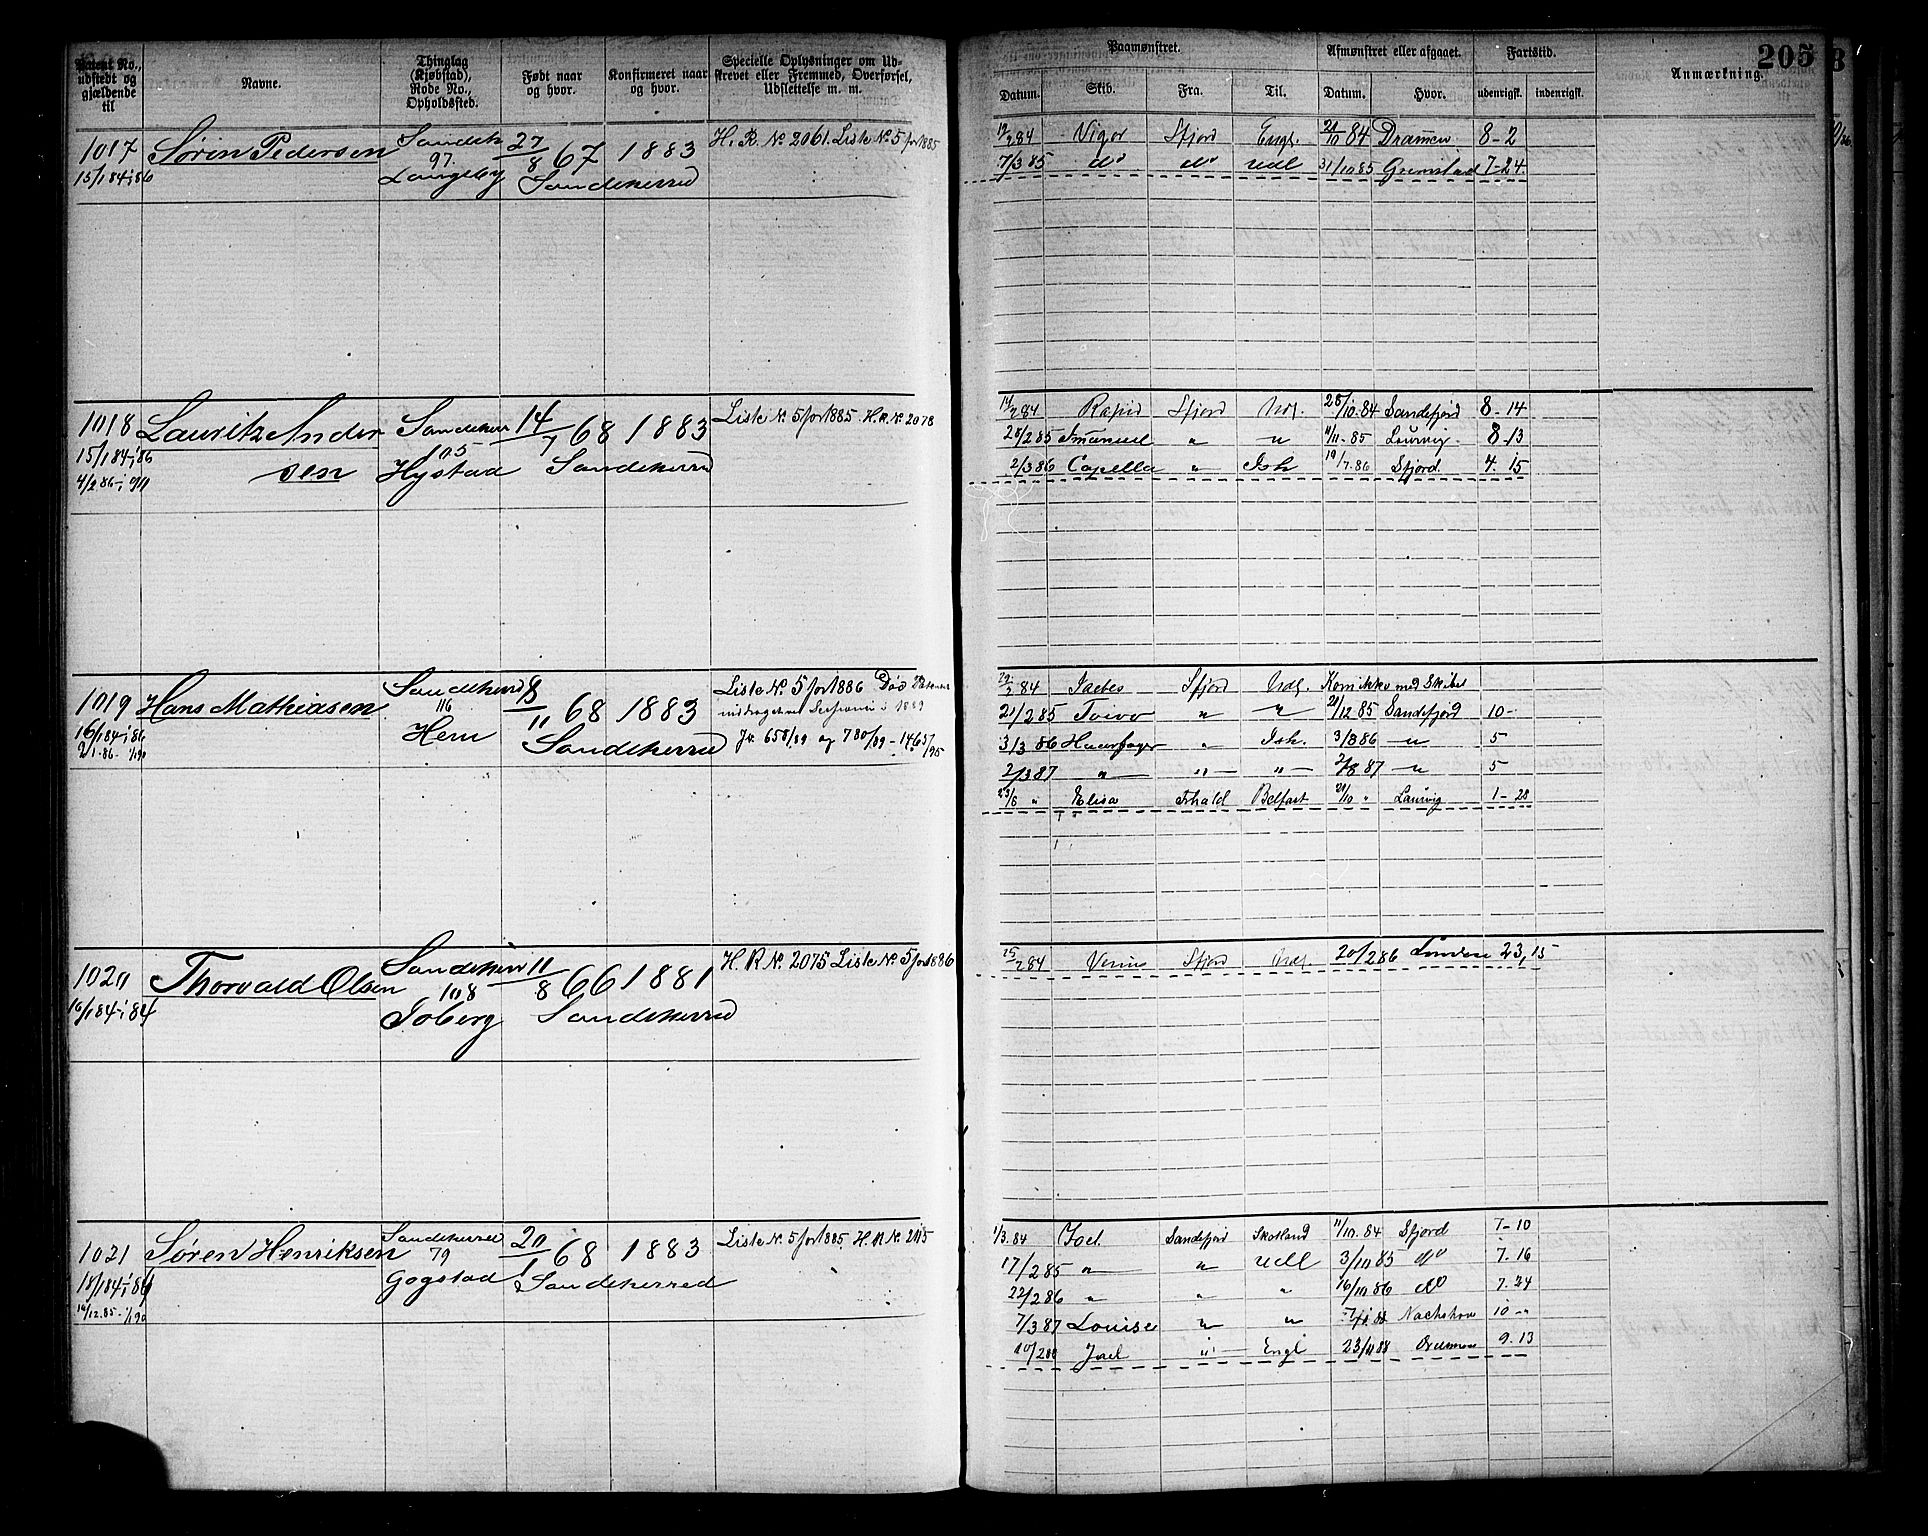 205
Patent No., udstedt og gjældende til
Navne.
Thinglag (Kjøbstad), Rode No., Opholdssted.
Født naar og hvor.
Konfirmeret naar og hvor.
Specielle Oplysninger om Ud-
skrevet eller Fremmed, Overførsel,
Udslettelse m. m.
Paamønstret.
Afmønstret eller afgaaet.
Fartstid.
Anmærkning.
Datum. Skib. Fra. Til. Datum. Hvor. udenrigsk. indenrigsk.
1017 Søren Pedersen 27/8 67 1883 H. R. No 2061. Liste No 5 for 1885
15/1 84-; 86 97. Langeby Sandeherred
84 Vigor Sfjord Engl. 84 Drammen 8-2
7/3 85 do do Udl 31/10 85 Grimstad 7-24
1018 Lauritz Ander Sandeherr 14/7 68 1883 Liste No 5 for 1885 H. R. No 2078
15/1 84-; 86 105
4/2 86-; 90 sen Hystad Sandeherred
14/2 84 Rapid Sfjord Udl. 28/10 84 Sandefjord 8-14
85 Imanuel " " 11/11-85 Laurvig 8-13
2/3 86 Capella " Ish 19/7-86 Sfjord 4. 15
1019 Hans Mathiasen Sandeherred 11 68 1883 Liste No 5 for 1886
16/1 84-; 86 116 Hem Sandeherred
9/1-86- 1/1 90 Jr. 658/89 og 780/89-1463/95
84 Sfjord Udl. med Skibet
21/2 85 Toivo " " 21/12 85 Sandefjord 10-
3/3 86 Haarfager " Ish. 3/8 86 -"- 5
2/3 87 -"- -"- -"- 2/8 87 -"- 5
23/6 " Elisa Fhald Belfast 21/10 " Laurvig 1-28
1020 Thorvald Olsen Sandeherr 11/8 66 1881 H. R No. 2075 Liste No. 5 for 1886
16/1 84-; 84 108 Joberg Sandeherred
25/2 84 Venus Sfjord Udl 20/2 86 London 23,15
1021 Søren Henriksen Sandeherred 20/1 68 1883 Liste No. 5 for 1885. H. R No. 2115
18/1 84-; 86 79 Gogstad Sandeherred
19/12.85- 1/1 90
1/3.84 Joel Sandefjord Skotland 11/10. 84 Sfjord 7-10
17/2 85 " " Udl 3/10 85 do 7-16
22/2 86 " " " 16/10 86 do 7-24
7/3 87 Louise " " 88 Nachskov 10-"
10/2 88 Joel -"- Engl 23/11 88 Drammen 9-13